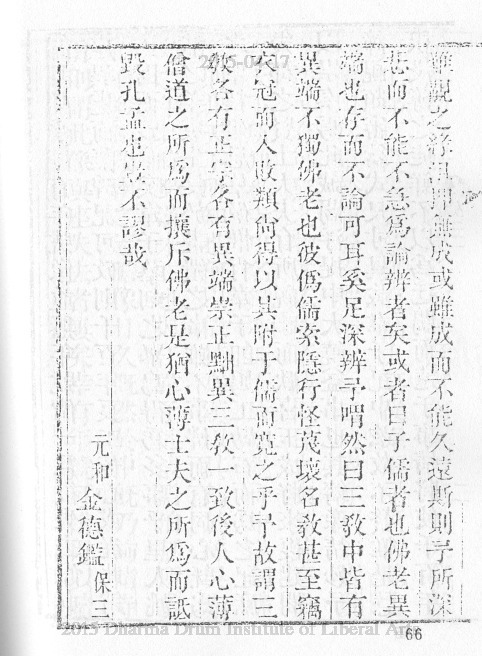 難觀之經其抑無成或雖成而不能久遠斯則予所深
悲而不能不急爲論辨者矣或者曰子儒者也佛老異
端也存而不論可耳奚足深辨予喟然曰三敎中皆有
異端不獨佛老也彼僞儒索隱行怪蔑壞名敎甚至竊
衣冠而人敗類尙得以其附于儒而寬之乎予故謂三
敎各有正宗各有異端崇正黜異三敎一致後人心薄
僧道之所爲而攘斥佛老是猶心薄士夫之所爲而詆
毀孔孟也豈不謬哉
元和 金德鑑 保三
2015-04-17
66
2015 Dharma Drum Institute of Liberal Arts